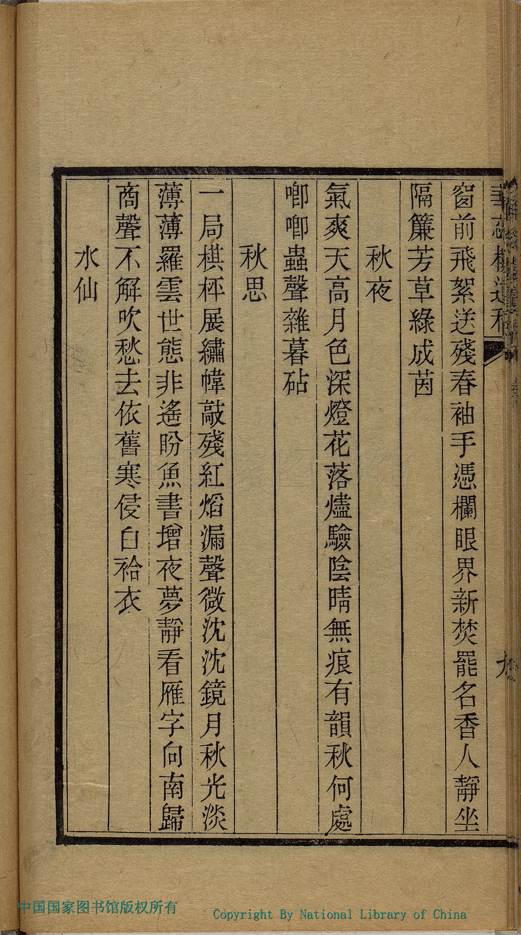 窗前飛絮送殘春袖手憑欄眼界新焚罷名香人靜坐
隔簾芳草綠成茵
秋夜
氣爽天高月色深燈花落燼驗陰晴無痕有韻秋何處
唧唧蟲聲雜暮砧
秋思
一局棋枰展繡幃敲殘紅熖漏聲微沈沈鏡月秋光淡
薄薄羅雲世態非遙盼魚書增夜夢靜看雁字向南歸
商聲不解吹愁去依舊寒侵白袷衣
水仙
中国国家图书馆版权所有
Copyright By National Library of China